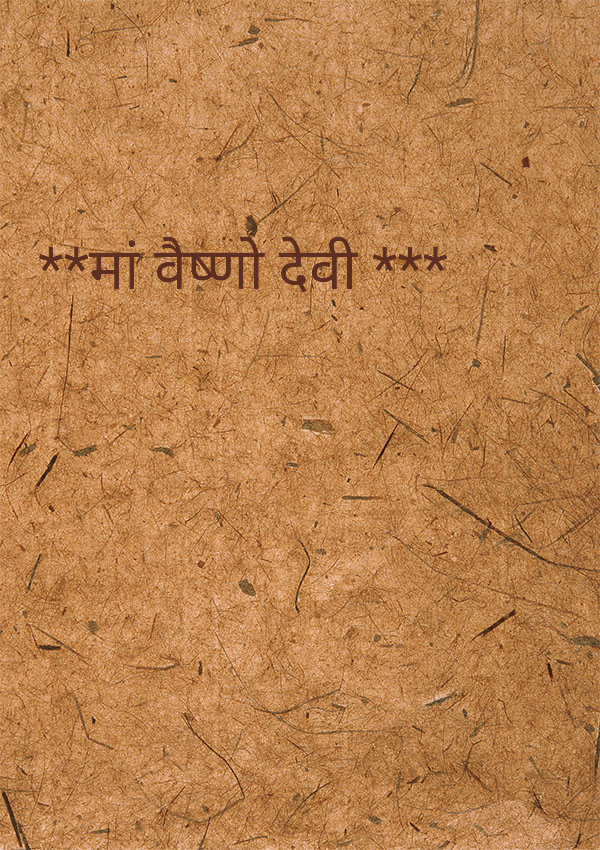 **मां वैष्णो देवी ***